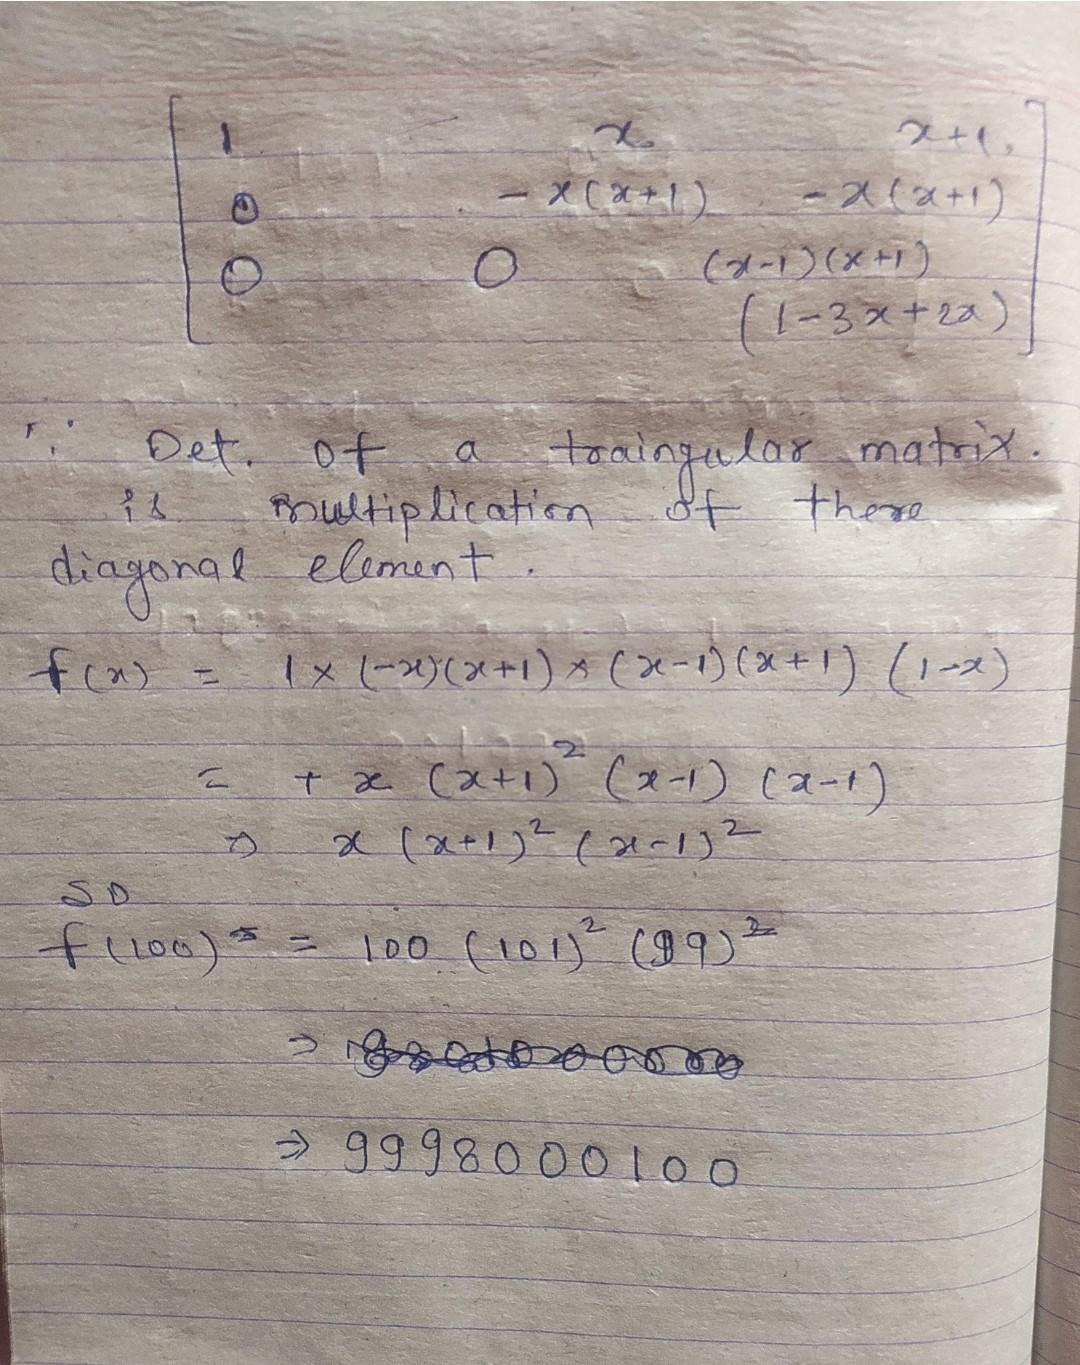 1 x x+1
0 -x(x+1) -x(x+1)
0 0 (x-1)(x+1)
(1-3x+2x)
∵ Det. of a traingular matrix.
is multiplication of there
diagonal element.
f(x) = 1 × (-x)(x+1) × (x-1)(x+1) (1-x)
= + x (x+1)² (x-1) (x-1)
⇒ x (x+1)² (x-1)²
SO
f(100) = 100 (101)² (99)²
⇒
⇒ 9998000100